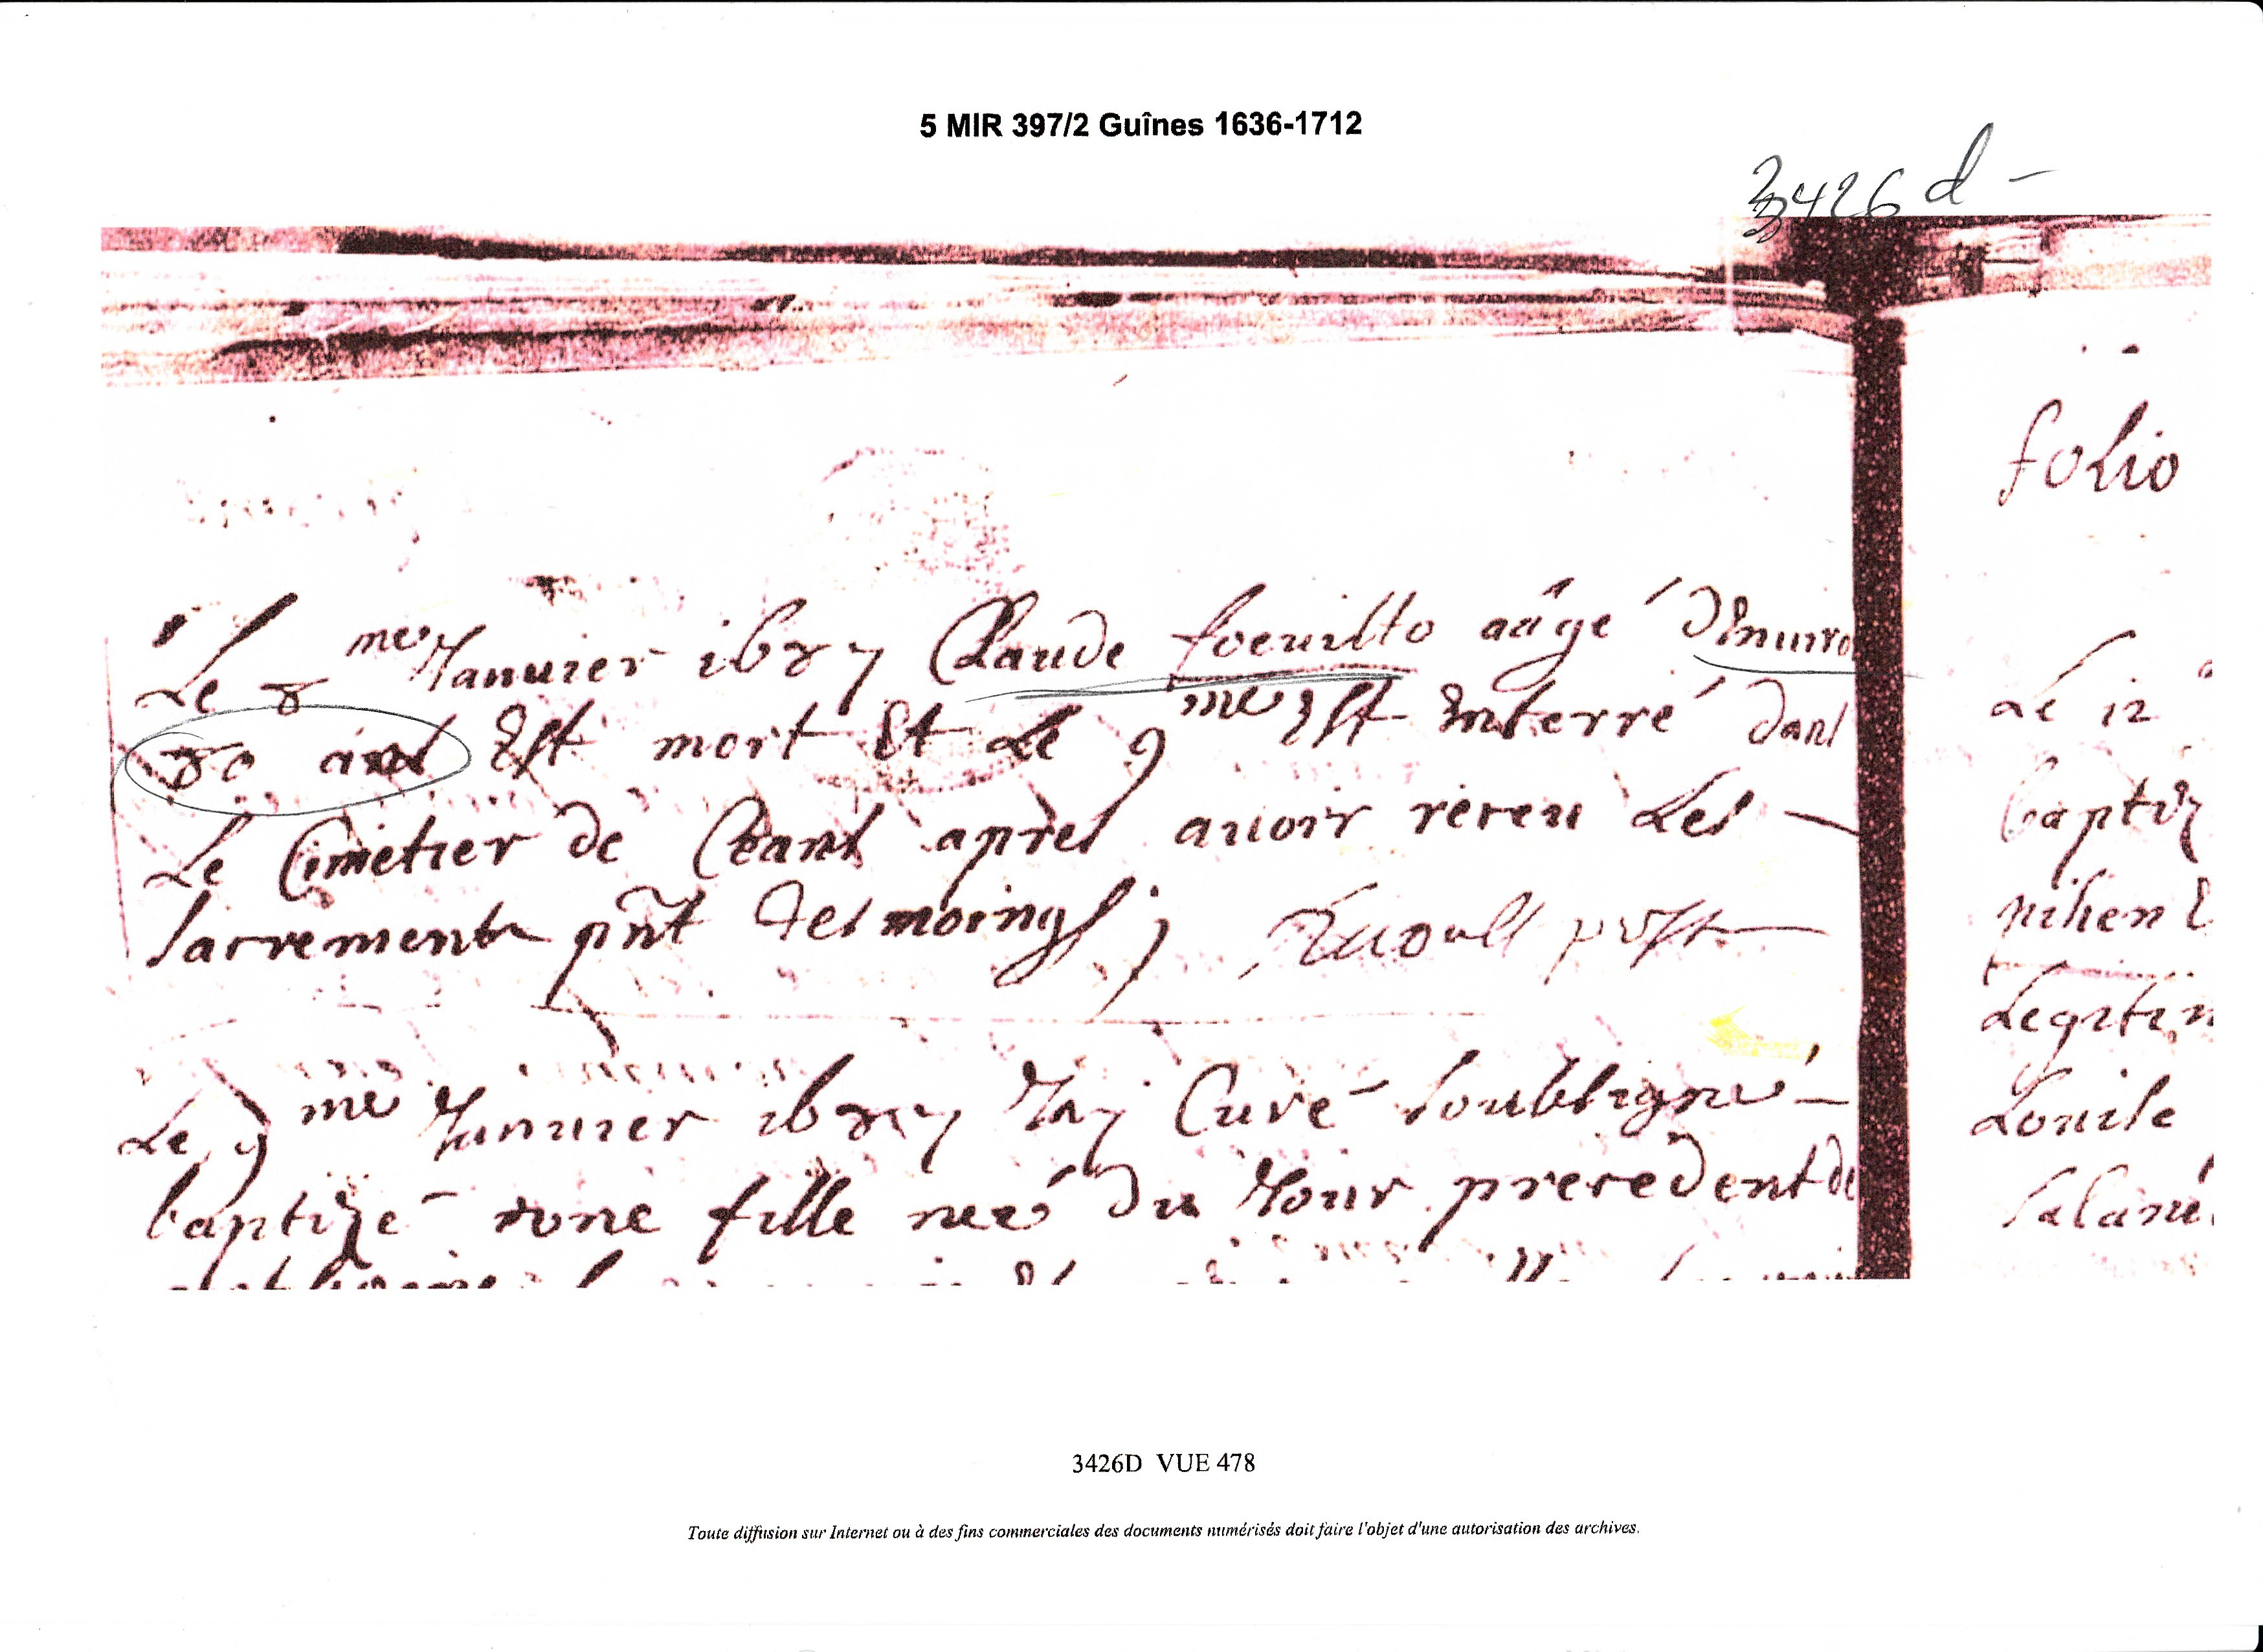 5 MIR 397/2 Guînes 1636-1712
3426 d -
Le 8 me Januier 168 Claude aâgé d'Enuiro
80 ans Est mort Et Le 9 me Est Enterré dans
Le Cimetier de Ceans apres auoir receu Les
sacrements pñt tesmoings ;
Le 9 me Januier 168 Jay Curé soubsigné
baptizé vne fille neé du Jour precedent de
folio
Le 12
baptiz
Legitim
Louise
3426D VUE 478
Toute diffusion sur Internet ou à des fins commerciales des documents numérisés doit faire l'objet d'une autorisation des archives.